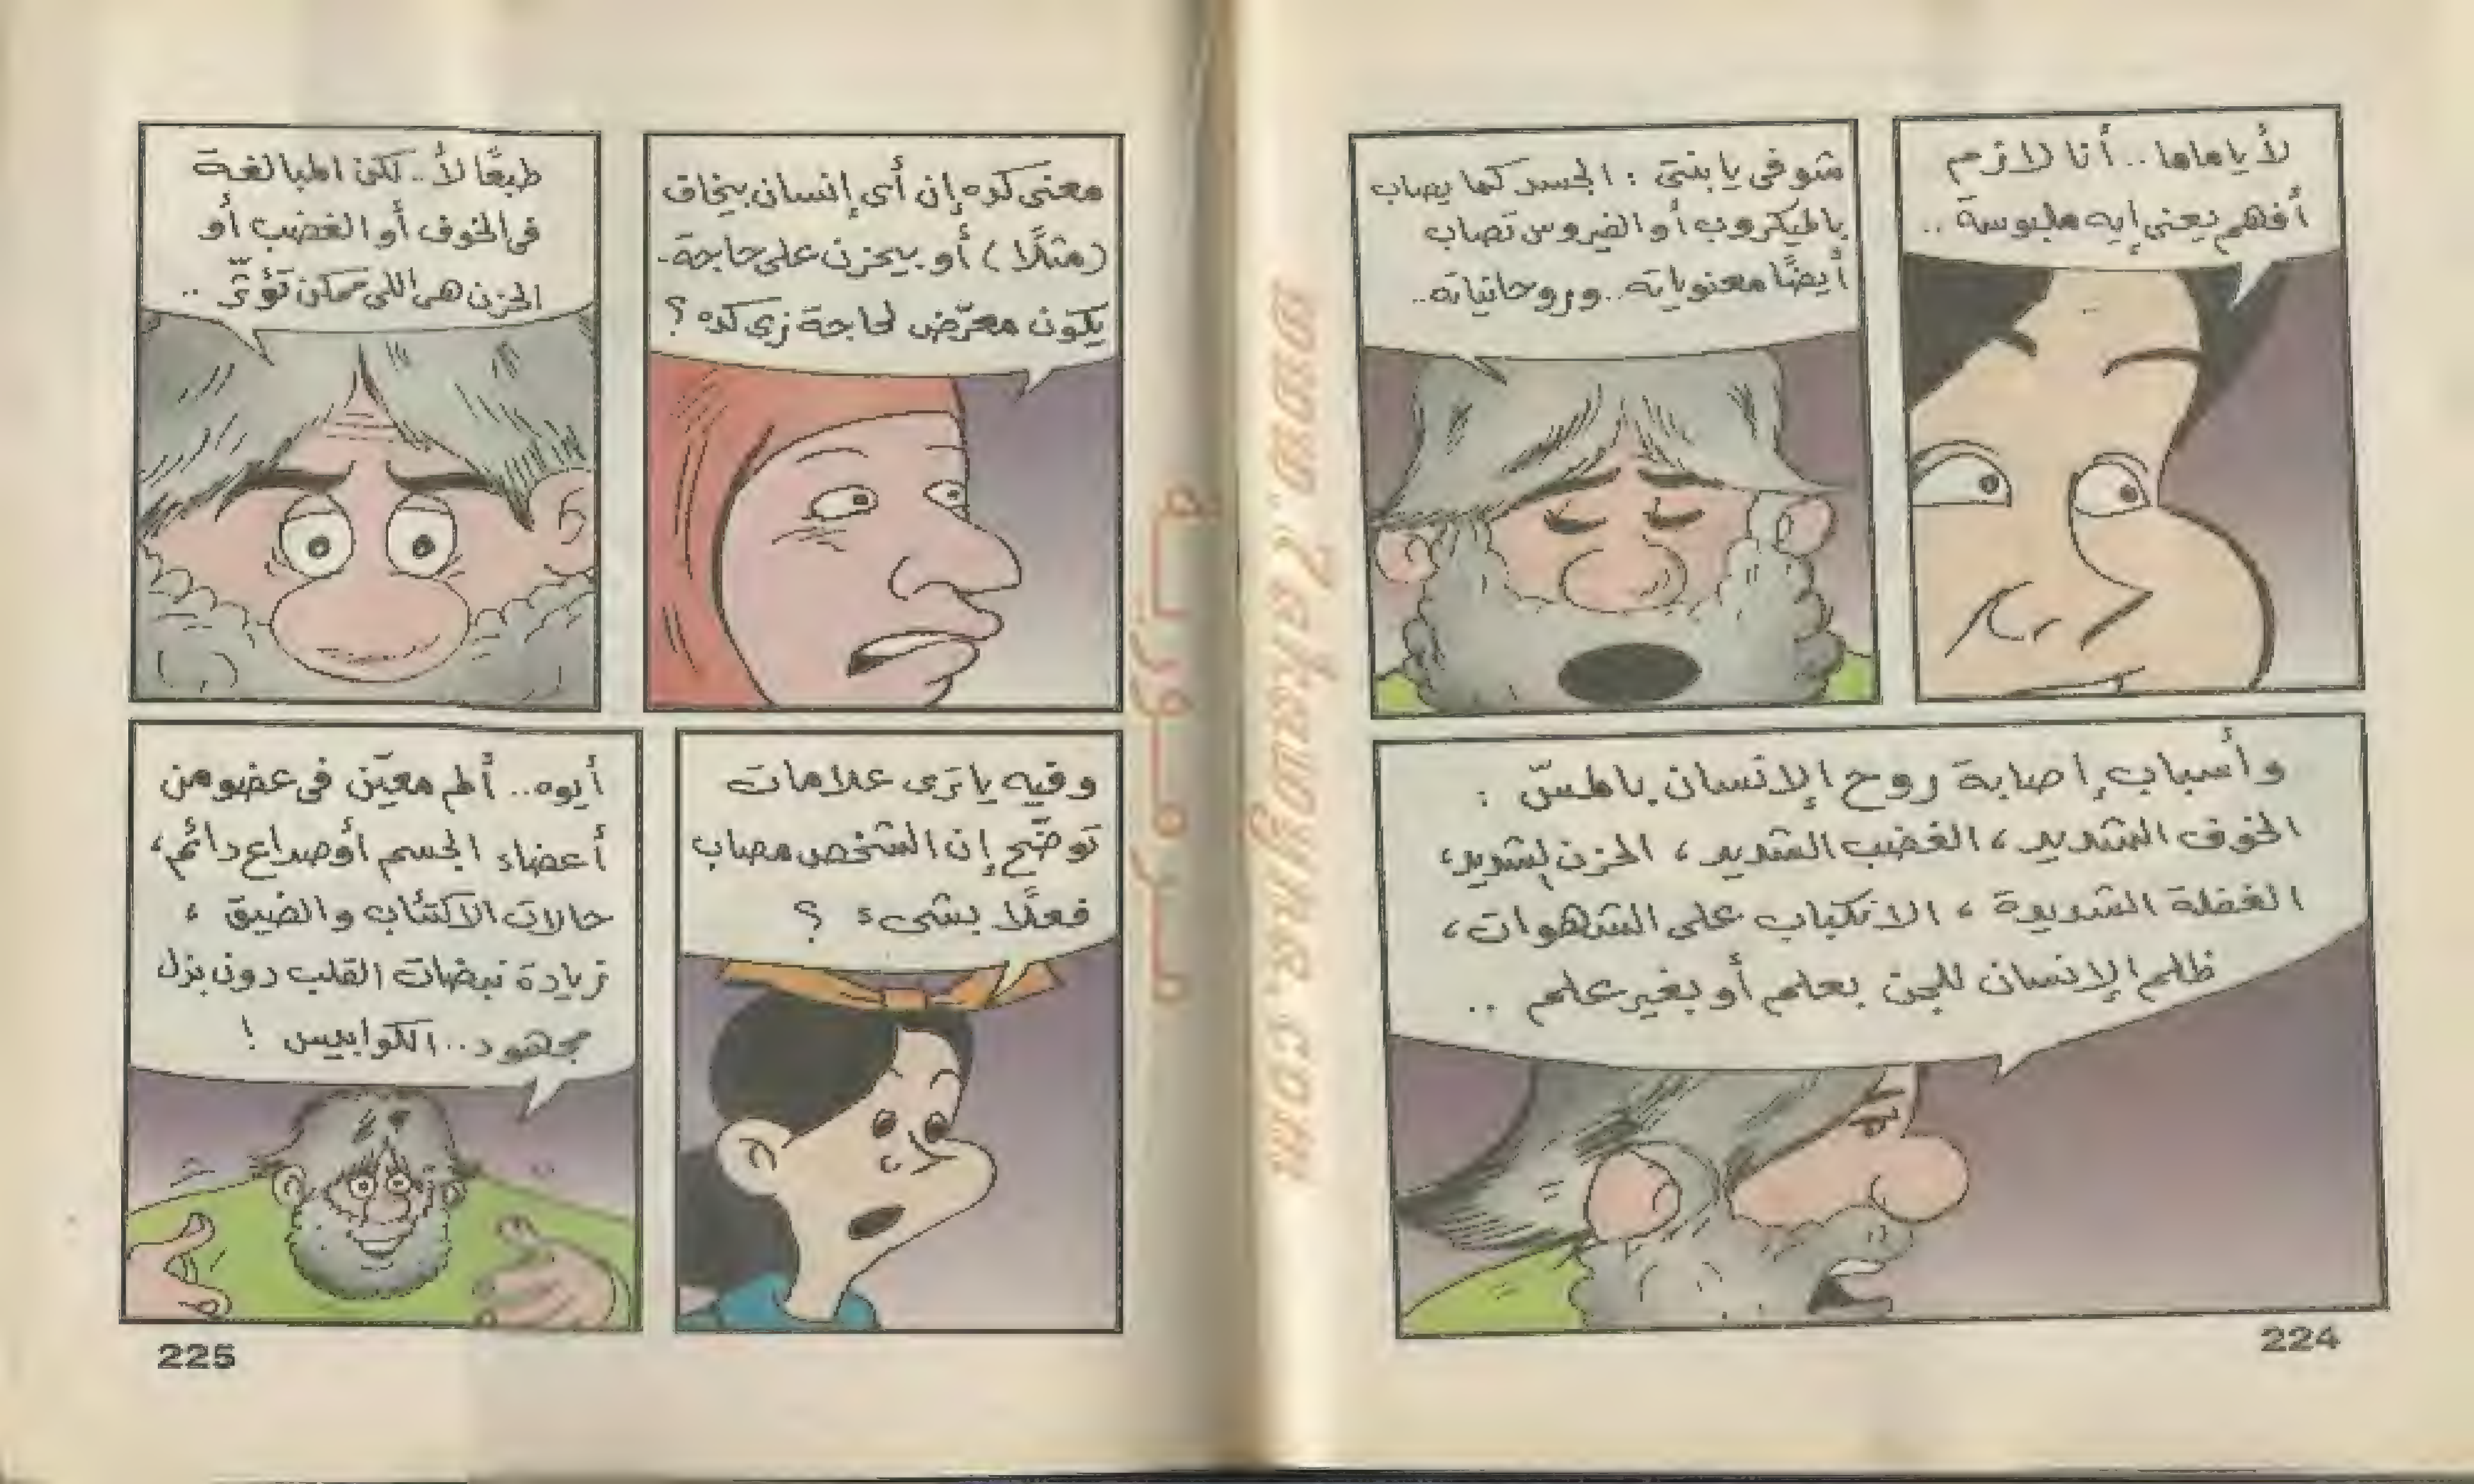 لأ يا ماما.. أنا لازم
أفهم يعنى إيه ملبوسة..
شوفى يا بنتى : الجسد كما يصاب
بالميكروب أو الفيروس تصاب
أيضًا معنوياته.. وروحانياته..
وأسباب إصابة روح الإنسان بالمسّ :
الخوف الشديد، الغضب الشديد، الحزن الشديد،
الغفلة الشديدة، الانكباب على الشهوات،
ظلم الإنسان للجن بعلم أو بغير علم ..
224
معنى كده إن أى إنسان بيخاف
(مثلًا) أو بيحزن على حاجة..
يكون معرّض لحاجة زى كده ؟
طبعًا لأ.. لكن المبالغة
فى الخوف أو الغضب أو
الحزن هى اللى ممكن تؤثّر ..
وفيه يا ترى علامات
توضّح إن الشخص مصاب
فعلًا بشىء ؟
أيوه.. ألم معيّن فى عضو من
أعضاء الجسم أو صداع دائم،
حالات الاكتئاب والضيق ،
زيادة نبضات القلب دون بذل
مجهود.. الكوابيس !
225